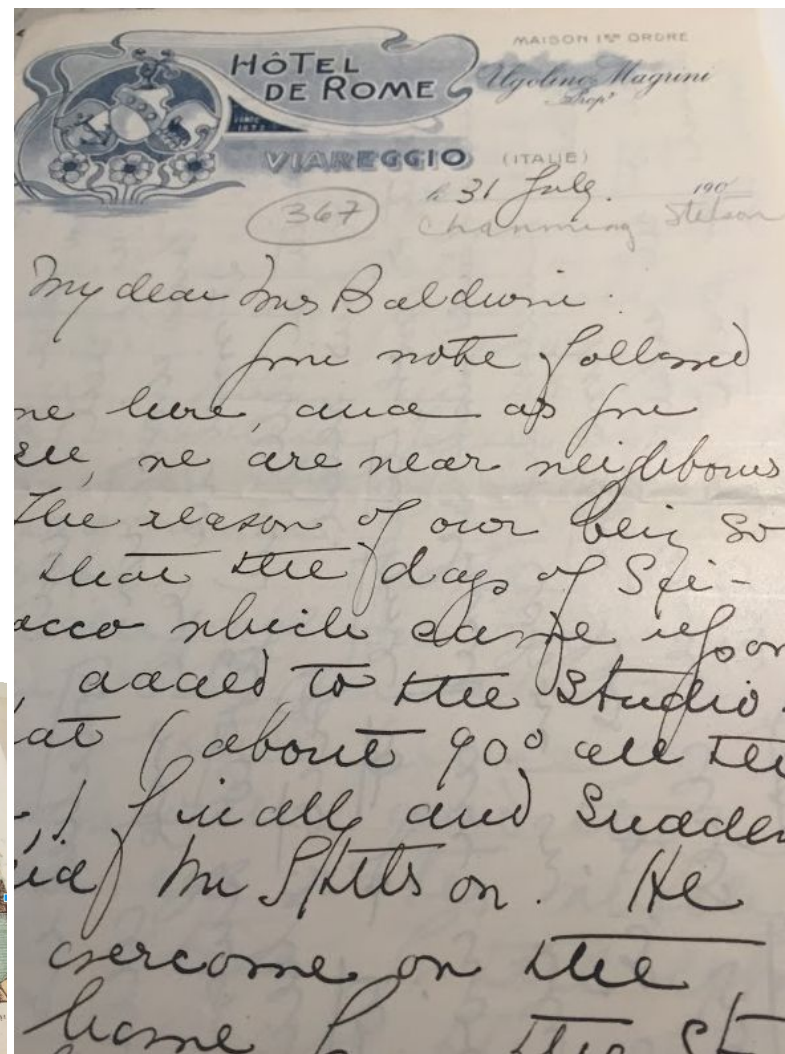 MAISON 1ER ORDRE
HÔTEL
DE ROME
Ugolino Magrini
Propr
VIAREGGIO (ITALIE)
31 July. 190
367
Channing Stetson
My dear Mrs Baldwin:
Your note followed
me here, and as you
see, we are near neighbours
The reason of our being so
that the days of Sci-
occo which came upon
, added to the Studio
at (about 90° all the
finally and sudden
Mr Stetson. He
overcome on the
home the St